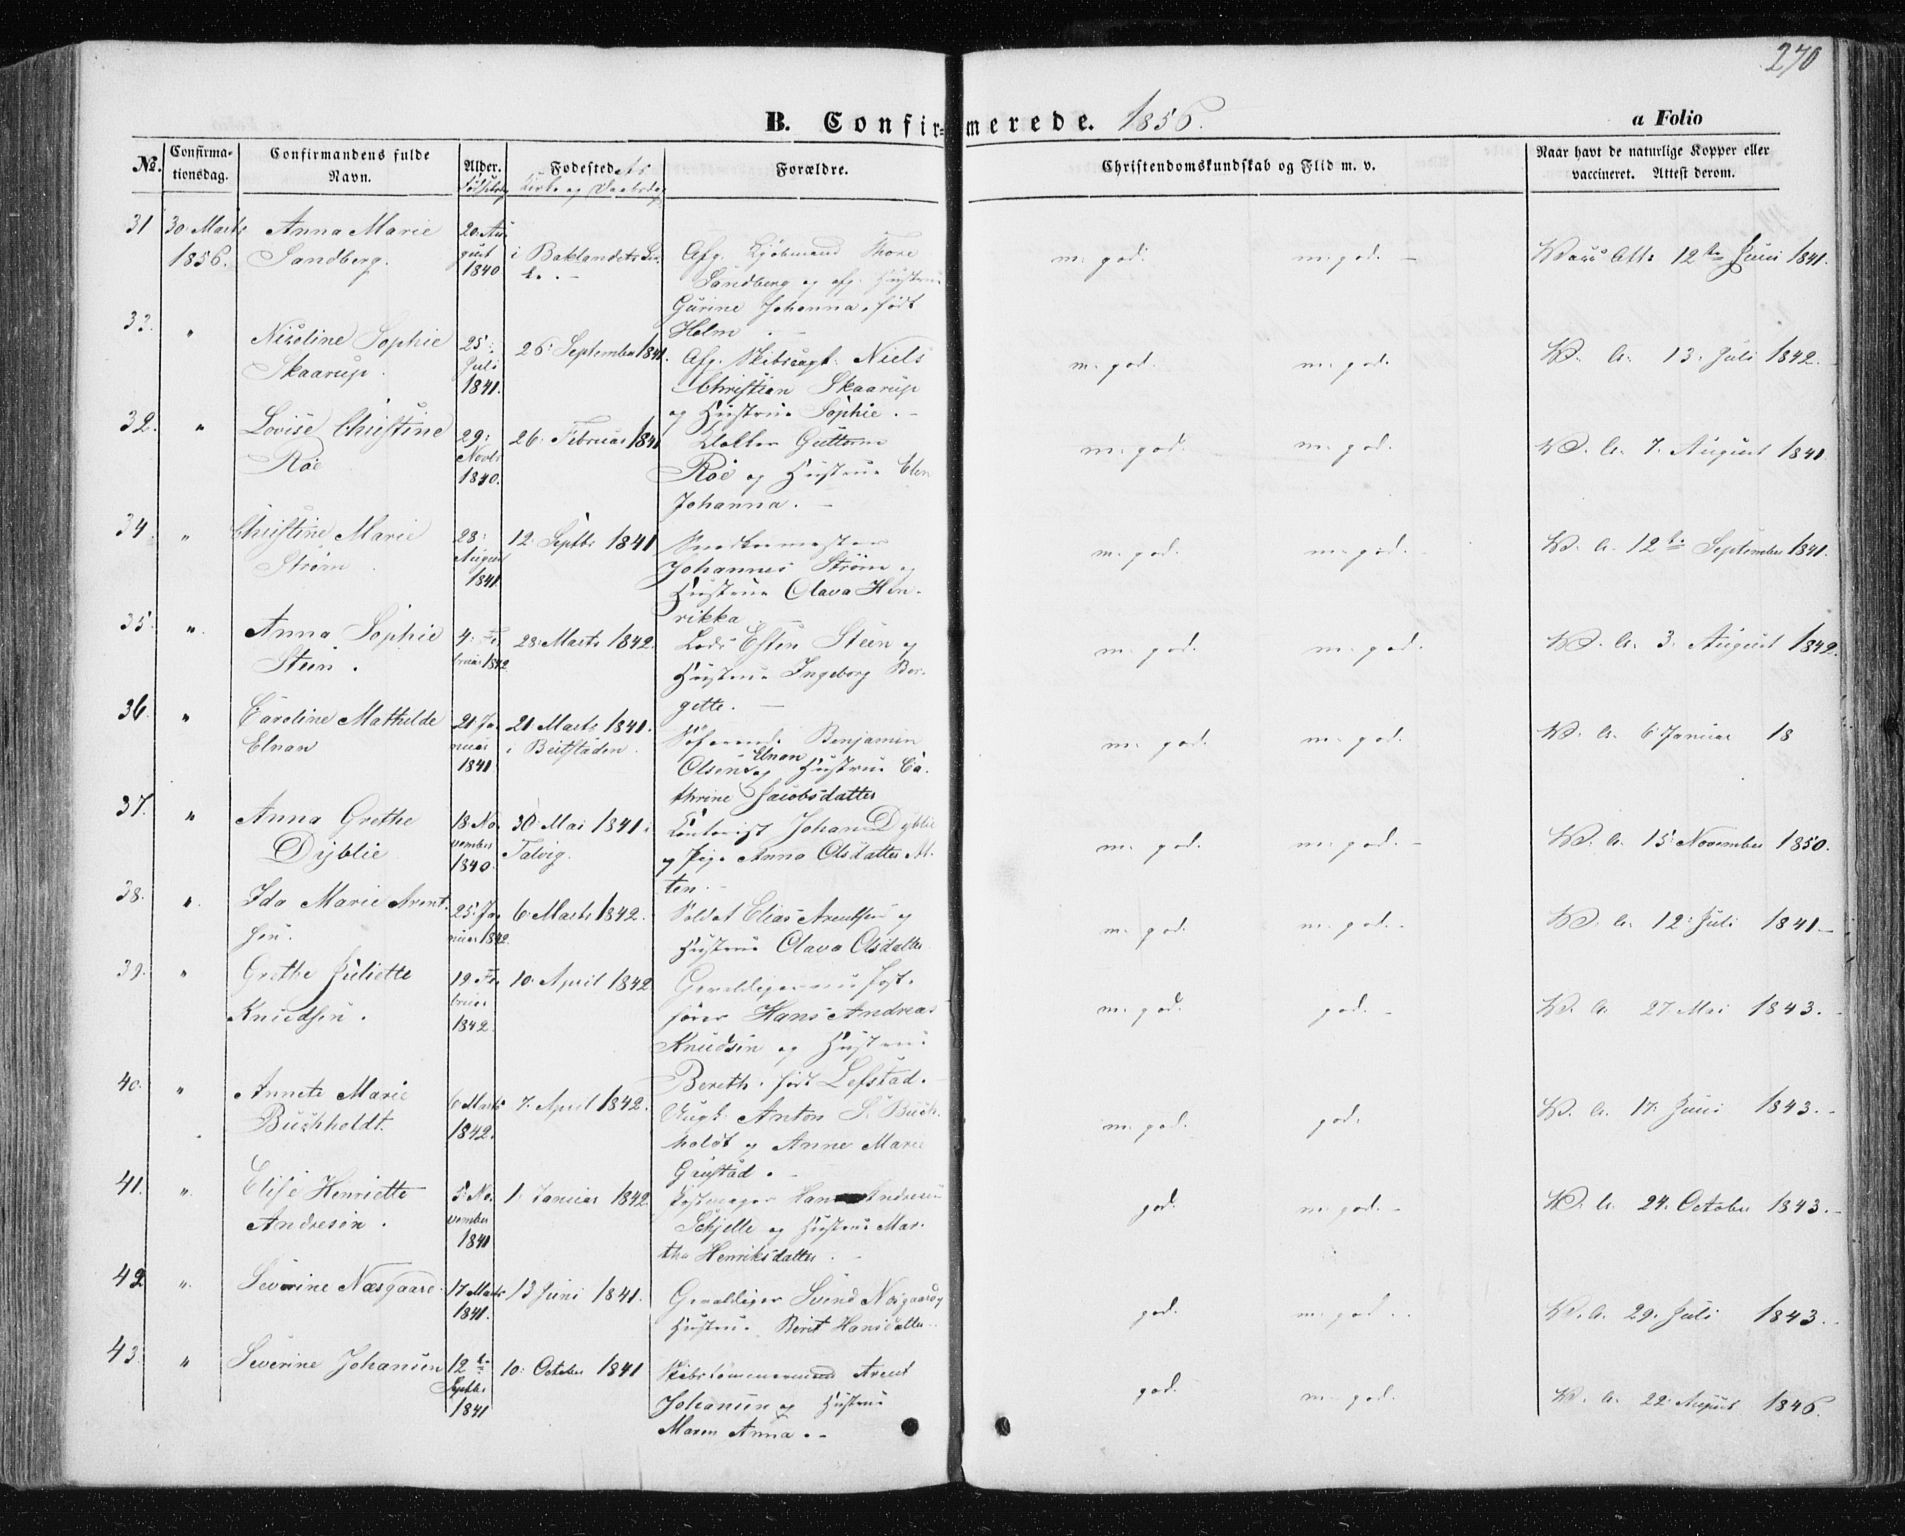 270
B. Confir-merede. 1856. a Folio
No. Confirma-tionsdag. Confirmandens fulde Navn. Alder. Fødested Forældre. Christendomskundskab og Flid m. v. Naar havt de naturlige Kopper eller vaccineret. Attest derom.
31 30 Marts 1856. Anna Marie Sandberg. 20 August 1840 i Baklandets Afg. Kjøbmand Thore Sandberg og afg. Hustrue Gurine Johanna, født Holm m. god. m. god. Att. 12te Juni 1841.
33. " Nicoline Sophie Skaarup. 25. Juli 1841. 26 September 1841. Afg. Niels Christian Skaarup og Hustrue Sophie. m. god. m. god. V. A. 13. Juli 1842.
32. " Lovise Christine Roe 29. Novbr 1840. 26. Februar 1841 Guttorm Roe og Hustrue Elen Johanna. m. god. m. god. V. A. 7. August 1841.
34 " Christine Marie Strøm 28. August 1841 12. Septbr 1841 Snedkermester Johannes Strøm og Hustrue Olava Henrikka m. god. m. god. V. A. 12te September 1841.
35. " Anna Sophie Steen. 4. Februar 1842 28. Marts 1842. Lods Esten Steen og Hustrue Ingeborg Bergette. m. god. m. god. V. A. 3. August 1842.
36. " Caroline Mathilde Elnan 21 Januar 1841 21 Marts 1841. i Beitstaden. Søfarende Benjamin Olsen Elnan og Hustrue Cathrine Jacobsdatter m. god. m. god. V. A. 6 Januar 18
37. " Anna Grethe Dyblie 18 November 1840. 30 Mai 1841. Talvig. Contorist Johan Dyblie og Pige Anna Olsdatter Alten. m. god. m. god. V. A. 15 November 1850.
38. " Ida Marie Arentsen. 25. Januar 1842. 6 Marts 1842. Soldat Elias Arentsen og Hustrue Olava Olsdatter m. god. m. god. V. A. 12. Juli 1841
39. " Grethe Juliette Knudsen. 19. Februar 1842. 10. April 1842 Hans Andreas Knudsen og Hustrue Bereth. født Lefstad. m. god. god. V. A. 27. Mai 1843.
40. " Annete Marie Buchholdt. 6 Marts 1842. 7. April 1842. Ungk. Anton S. Buchholdt og Anne Marie Gaustad. m. god. god. V. A. 17. Juni 1843.
41. " Elise Henriette Andresen. 5. November 1841 1. Januar 1842. Hans Andresen Schjelle og Hustrue Martha Henriksdatter. god. m. god. V. A. 24. October 1843.
42 " Severine Næsgaard. 17 Marts 1841. 13 Juni 1841. Gevaldiger Svend Nesgaard og Hustrue Berit Hansdatter. god. m. god. V. A. 29. Juli 1843.
43. " Severine Johansen 12te Septbr 1841 10. October 1841 Skibstømmermand Arent Johansen og Hustrue Maren Anna. god. m. god. V. A. 22 August 1846.